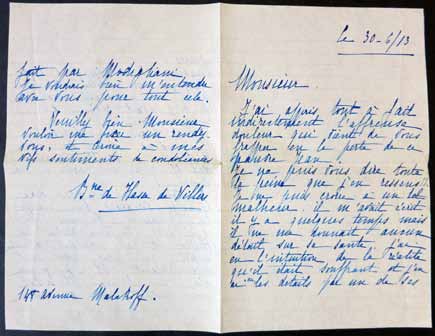 le 30-6/13
Monsieur.
J'ai appris tout à fait
indirectement l'affreuse
douleur qui vient de vous
frapper en la perte de ce
pauvre Jean.
Je ne puis vous dire toute
la peine que j'en ressens!!
Je ne puis croire à un tel
malheur il m'avait écrit
il y a quelques temps mais
il ne me donnait aucun
détail sur sa santé, j'ai
eu l'intention, de la réalité
qu'il était souffrant et j'en
ai les détails par un de ses
fait par
Je voudrais bien m'entendre
avec vous pour tout cela.
Veuillez Monsieur
vouloir me fixer un rendez
vous, et croire à mes
vifs sentiments de condoléances
Bne de Hasse de Villers
148 avenue Malakoff.